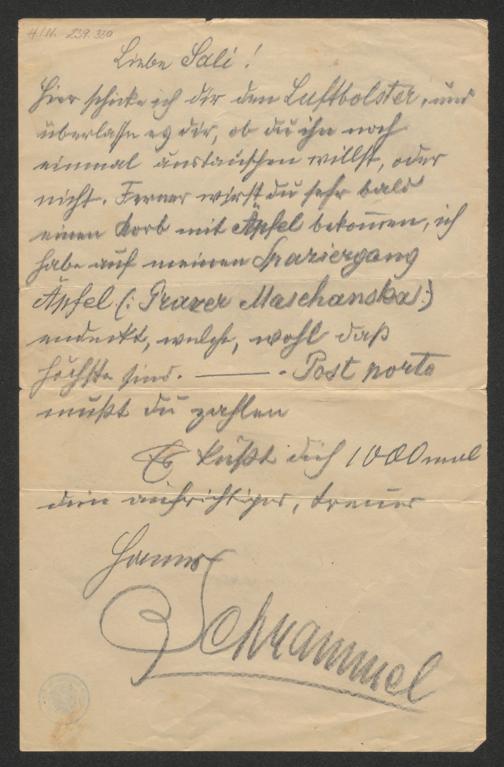 H.I.N. 239.330
Liebe Sali!
Hier schicke ich dir den Luftbolster, und
überlasse es dir, ob du ihn noch
einmal austauschen willst, oder
nicht. Ferner wirst du sehr bald
einen Korb mit Äpfel bekom̄en, ich
habe auf meinen Spaziergang
Äpfel (: Grazer Maschanska :)
endeckt, welche, wohl daß
höchste sind. — . Post porto
mußt du zahlen
Es küßt dich 1000 mal
dein aufrichtiger, treuer
Hanns
Schrammel